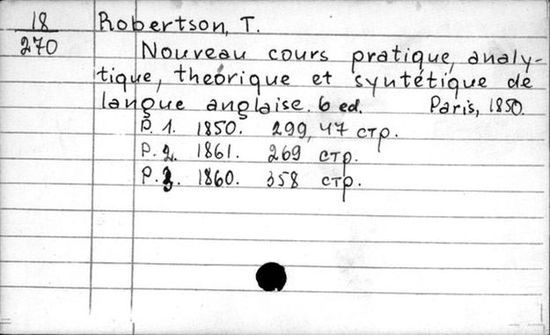 18
270
Robertson, T.
Nouveau cours pratique, analy-
tique, théorique et syntétique de
langue anglaise. 6 ed. Paris, 1850.
P. 1. 1850. 299, 47 стр.
P. 2. 1861. 269 стр.
P. 3. 1860. 358 стр.